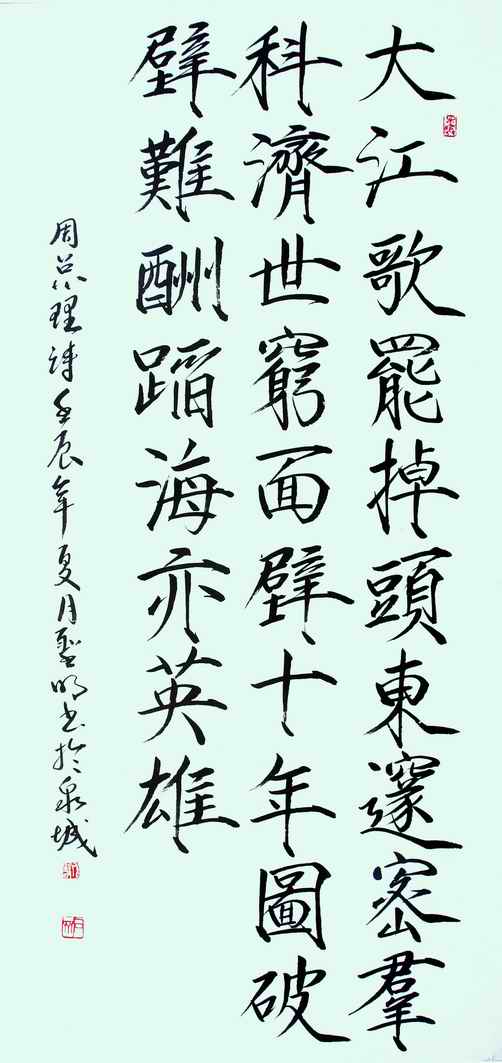 大江歌罷掉頭東邃密羣
科濟世窮面壁十年圖破
壁難酬蹈海亦英雄
周总理詩壬辰年夏月聖明书於泉城